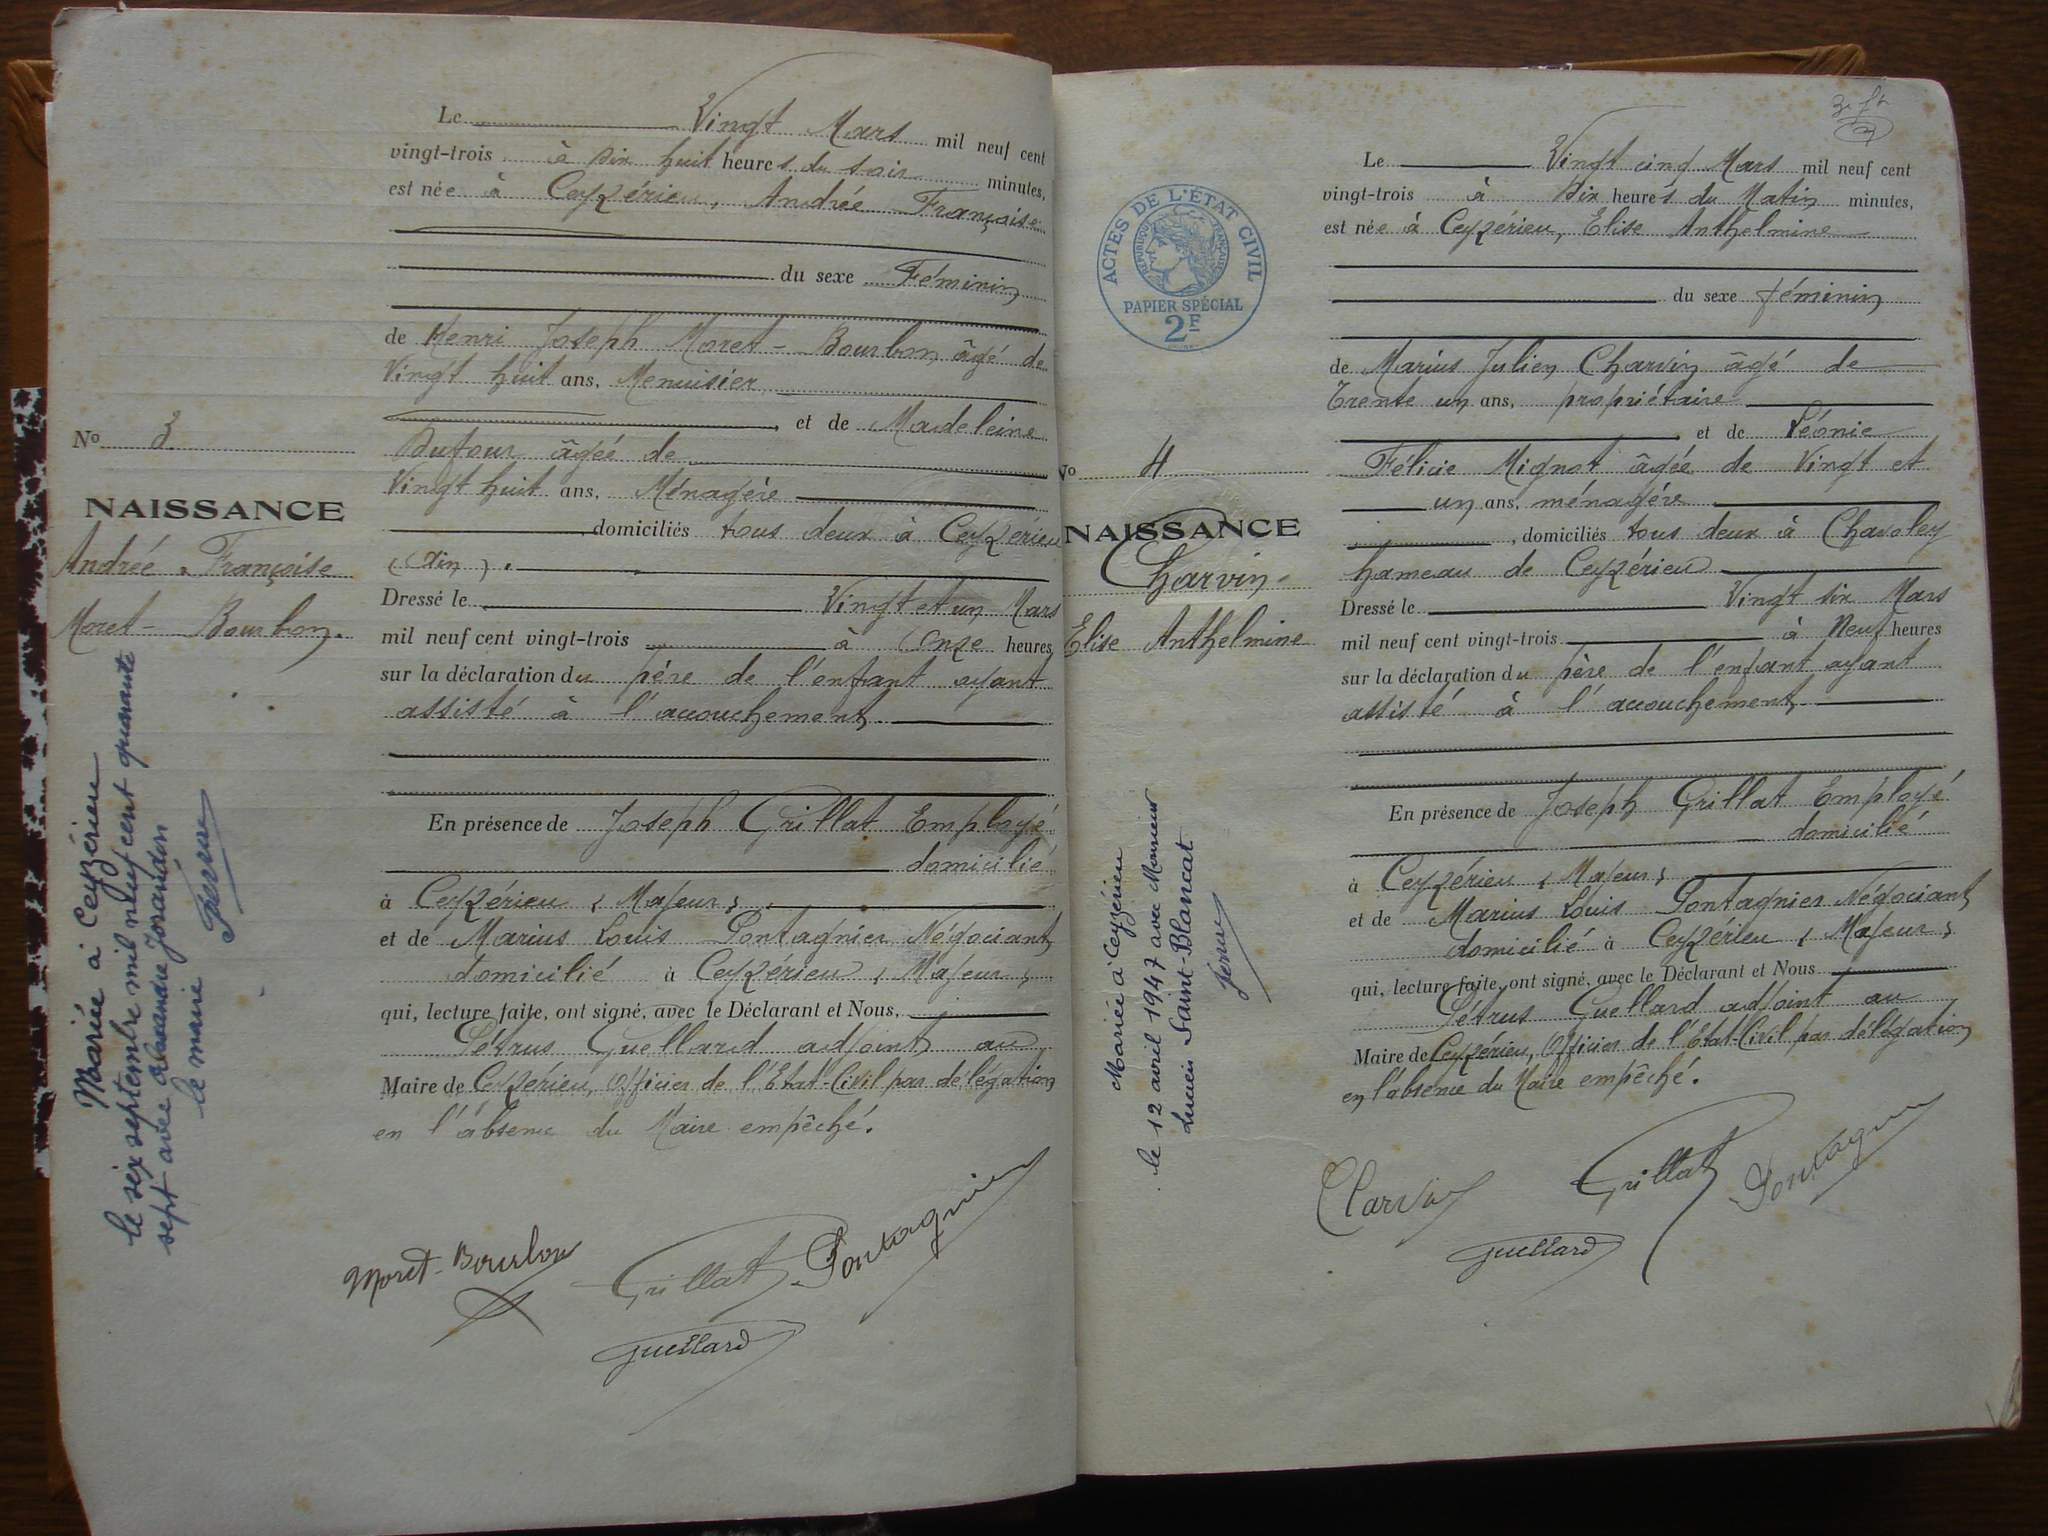 Le Vingt Mars mil neuf cent
vingt-trois à dix huit heures du soir minutes,
est née à Ceyzérieu, Andrée Françoise
du sexe Féminin
de Henri Joseph Moret-Bourbon âgé de
Vingt huit ans, Menuisier
et de Madeleine
Dufour âgée de
Vingt huit ans, Ménagère
, domiciliés tous deux à Ceyzérieu
(Ain).
Dressé le Vingt et un Mars
mil neuf cent vingt-trois à Onze heures
sur la déclaration du père de l'enfant ayant
assisté à l'accouchement.
En présence de Joseph Grillat Employé
domicilié
à Ceyzérieu (Majeur)
et de Marius Louis Pontagnier Négociant
domicilié à Ceyzérieu (Majeur)
qui, lecture faite, ont signé, avec le Déclarant et Nous,
Pétrus Guellard adjoint au
Maire de Ceyzérieu, Officier de l'Etat-Civil par délégation
en l'absence du Maire empêché.
Moret-Bourbon Grillat Pontagnier
Guellard
No 3
NAISSANCE
Andrée Françoise
Moret-Bourbon.
Mariée à Ceyzérieu
le six septembre mil neuf cent quarante
sept avec Alexandre Josandin
le maire
3e ft
Le Vingt cinq Mars mil neuf cent
vingt-trois à dix heures du Matin minutes,
est née à Ceyzérieu, Elise Anthelmine
du sexe féminin
de Marius Julien Charvin âgé de
Trente un ans, propriétaire
et de Léonie
Félicie Mignot âgée de Vingt et
un ans, ménagère
, domiciliés tous deux à Chavoley
hameau de Ceyzérieu
Dressé le Vingt six Mars
mil neuf cent vingt-trois à Neuf heures
sur la déclaration du père de l'enfant ayant
assisté à l'accouchement
En présence de Joseph Grillat Employé
domicilié
à Ceyzérieu (Majeur)
et de Marius Louis Pontagnier Négociant
domicilié à Ceyzérieu (Majeur)
qui, lecture faite, ont signé, avec le Déclarant et Nous
Pétrus Guellard adjoint au
Maire de Ceyzérieu, Officier de l'Etat-Civil par délégation
en l'absence du Maire empêché.
Charvin Grillat Pontagnier
Guellard
ACTES DE L'ÉTAT CIVIL
RÉPUBLIQUE FRANÇAISE
PAPIER SPÉCIAL
2F
No 4
NAISSANCE
Charvin
Elise Anthelmine
Mariée à Ceyzérieu
le 12 avril 1947 avec Monsieur
Lucien Saint-Blancat